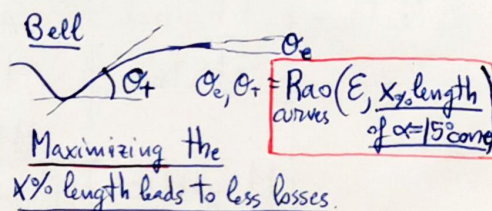 Bell
θe
θ+
θe, θ+ = Rao(ε, X% length
curves of α=15° cone)
Maximizing the
X% length leads to less losses.